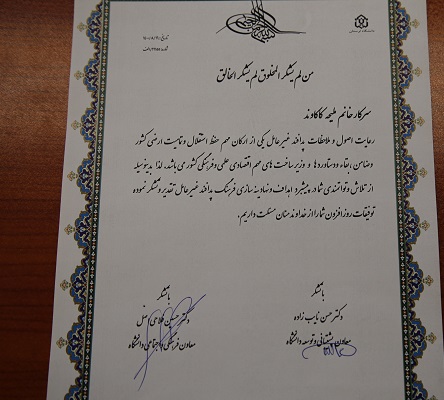 دانشگاه لرستان
من لم یشکر المخلوق لم یشکر الخالق
سرکار خانم ملیحه کاکاوند
رعایت اصول و ملاحظات پدافند غیرعامل یکی از ارکان مهم حفظ استقلال و تمامیت ارضی کشور
و ضامن بقاء دستاوردها و زیرساخت های مهم اقتصادی علمی و فرهنگی کشور می باشد. لذا بدینوسیله
از تلاش و توانمندی شما در پیشبرد اهداف و نهادینه سازی فرهنگ پدافند غیرعامل تقدیر و تشکر نموده
توفیقات روزافزون شما را از خداوند منان مسئلت داریم.
باتشکر
دکتر حسن نایب زاده
معاون پشتیبانی و توسعه دانشگاه
باتشکر
دکتر حسین فلاحی اصل
معاون فرهنگی و اجتماعی دانشگاه